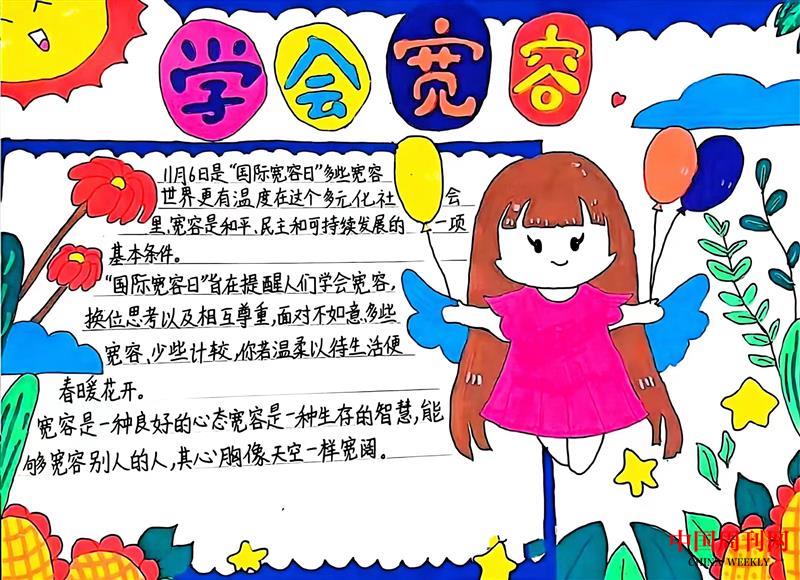 学会宽容
11月6日是“国际宽容日”多些宽容
世界更有温度在这个多元化社会
里、宽容是和平、民主和可持续发展的一项
基本条件。
“国际宽容日”旨在提醒人们学会宽容,
换位思考以及相互尊重,面对不如意多些
宽容、少些计较,你若温柔以待生活便
春暖花开。
宽容是一种良好的心态宽容是一种生存的智慧,能
够宽容别人的人,其心胸像天空一样宽阔。
中国周刊网
CHINA WEEKLY